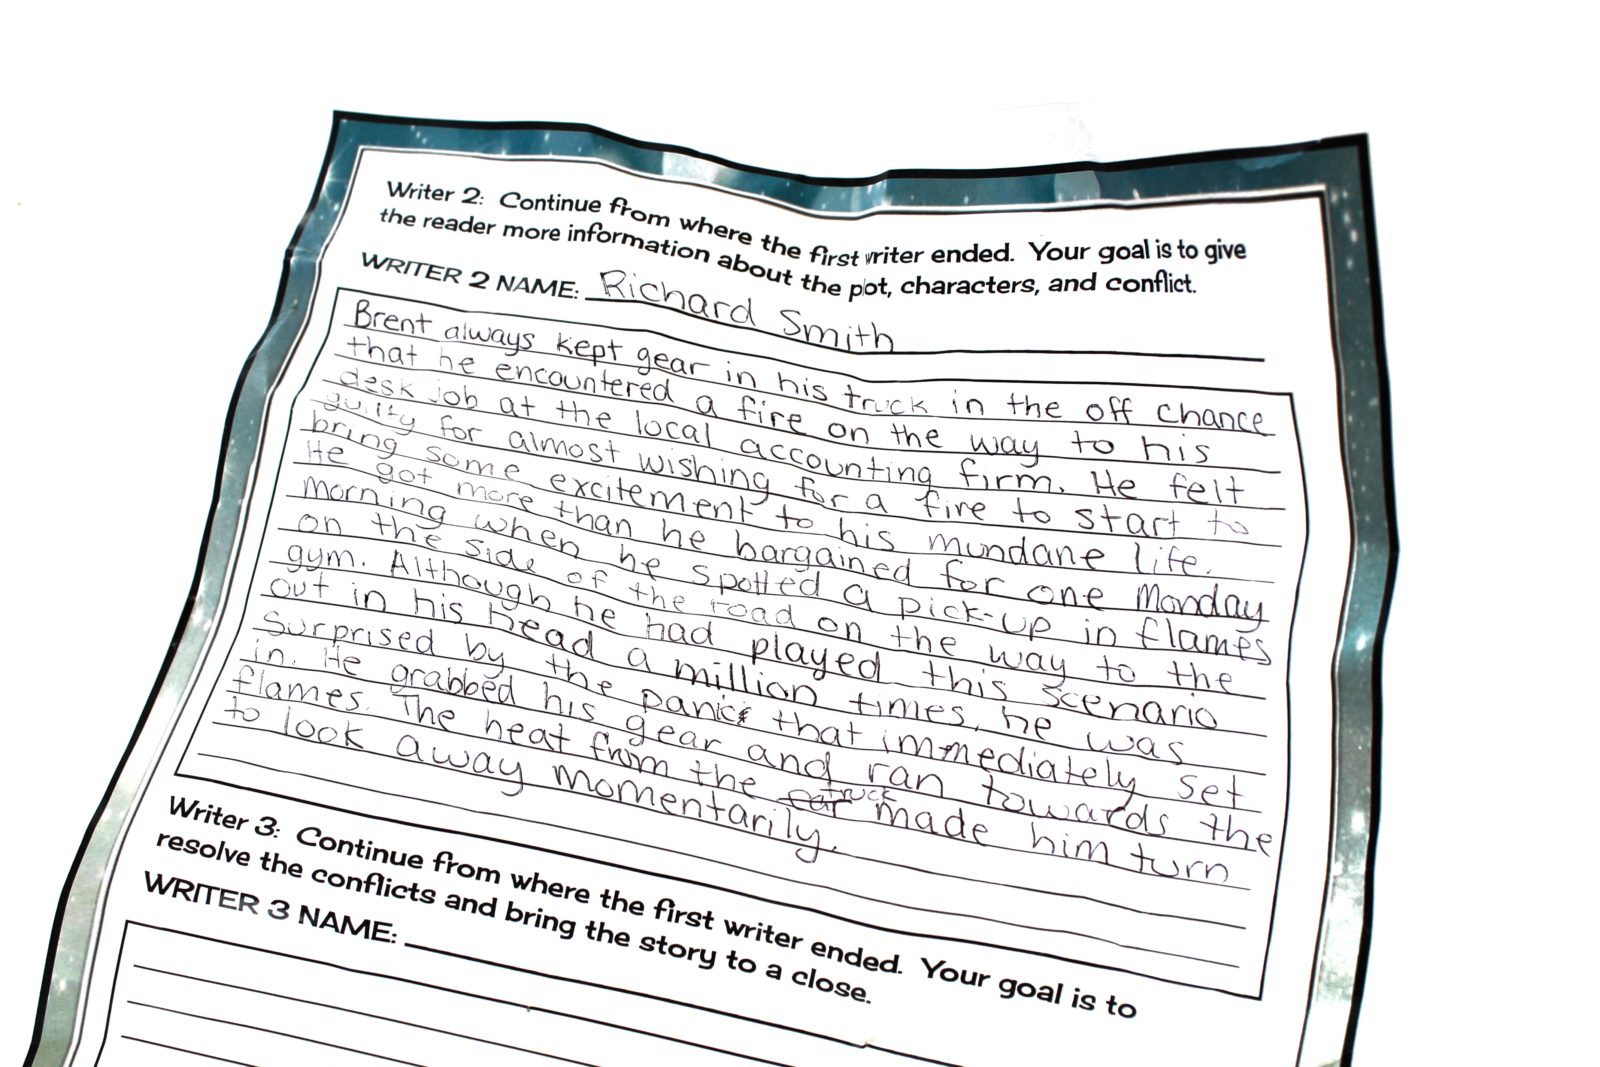 Writer 2: Continue from where the first writer ended. Your goal is to give
the reader more information about the plot, characters, and conflict.
WRITER 2 NAME: Richard Smith
Brent always kept gear in his truck in the off chance
that he encountered a fire on the way to his
desk job at the local accounting firm. He felt
guilty for almost wishing for a fire to start to
bring some excitement to his mundane life.
He got more than he bargained for one Monday
morning when he spotted a pick-up in flames
on the side of the road on the way to the
gym. Although he had played this scenario
out in his head a million times, he was
surprised by the panic that immediately set
in. He grabbed his gear and ran towards the
flames. The heat from the car truck made him turn
to look away momentarily.
Writer 3: Continue from where the first writer ended. Your goal is to
resolve the conflicts and bring the story to a close.
WRITER 3 NAME: